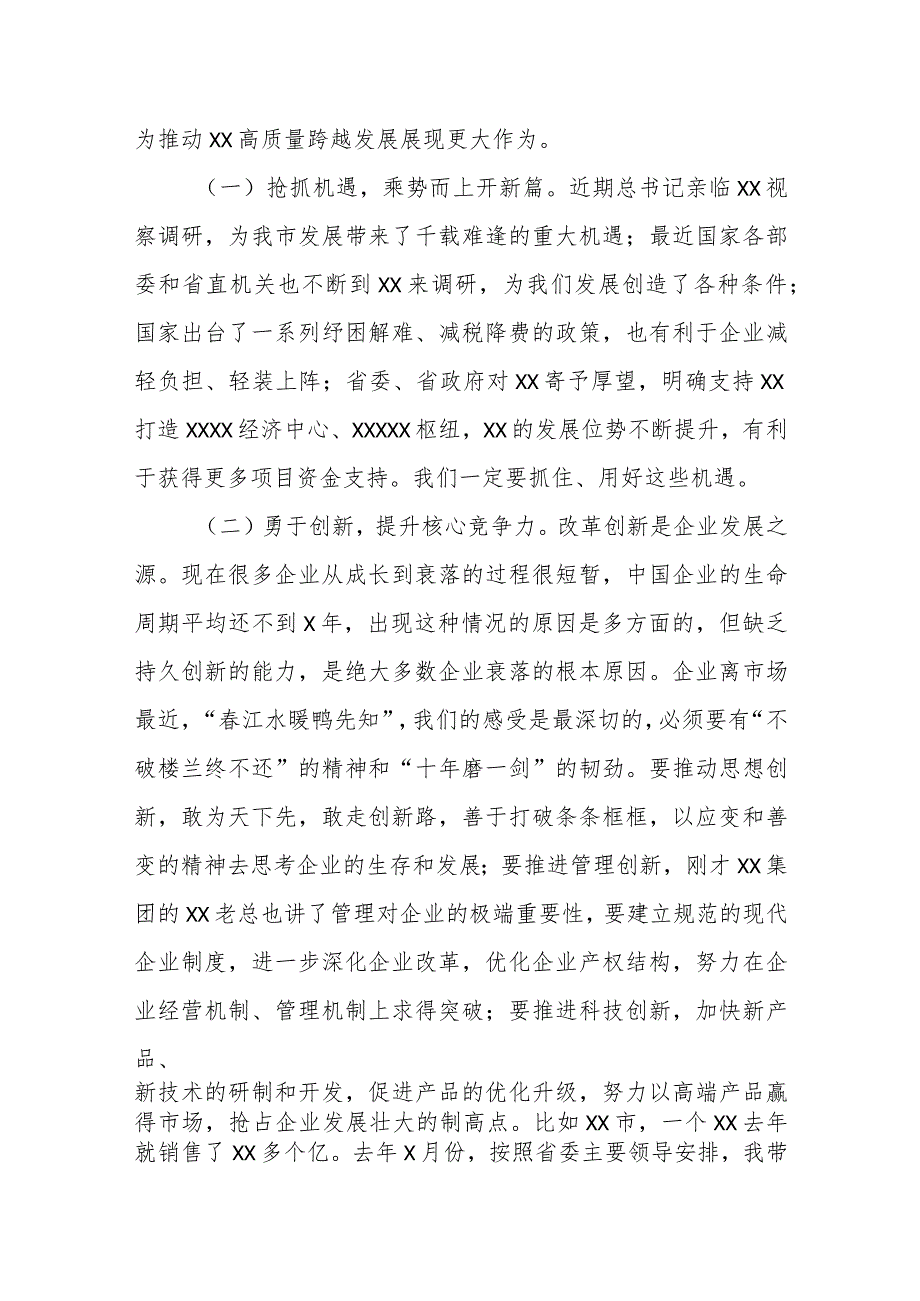 为推动 XX 高质量跨越发展展现更大作为。
（一）抢抓机遇，乘势而上开新篇。近期总书记亲临 XX 视
察调研，为我市发展带来了千载难逢的重大机遇；最近国家各部
委和省直机关也不断到 XX 来调研，为我们发展创造了各种条件；
国家出台了一系列纾困解难、减税降费的政策，也有利于企业减
轻负担、轻装上阵；省委、省政府对 XX 寄予厚望，明确支持 XX
打造 XXXX 经济中心、XXXXX 枢纽，XX 的发展位势不断提升，有利
于获得更多项目资金支持。我们一定要抓住、用好这些机遇。
（二）勇于创新，提升核心竞争力。改革创新是企业发展之
源。现在很多企业从成长到衰落的过程很短暂，中国企业的生命
周期平均还不到 X 年，出现这种情况的原因是多方面的，但缺乏
持久创新的能力，是绝大多数企业衰落的根本原因。企业离市场
最近，“春江水暖鸭先知”，我们的感受是最深切的，必须要有“不
破楼兰终不还”的精神和“十年磨一剑”的韧劲。要推动思想创
新，敢为天下先，敢走创新路，善于打破条条框框，以应变和善
变的精神去思考企业的生存和发展；要推进管理创新，刚才 XX 集
团的 XX 老总也讲了管理对企业的极端重要性，要建立规范的现代
企业制度，进一步深化企业改革，优化企业产权结构，努力在企
业经营机制、管理机制上求得突破；要推进科技创新，加快新产
品、
新技术的研制和开发，促进产品的优化升级，努力以高端产品赢
得市场，抢占企业发展壮大的制高点。比如 XX 市，一个 XX 去年
就销售了 XX 多个亿。去年 X 月份，按照省委主要领导安排，我带